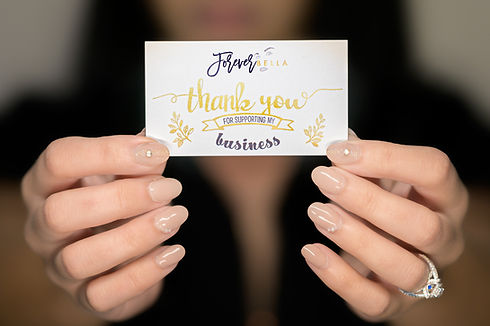 Forever
BELLA
thank you
FOR SUPPORTING MY
business